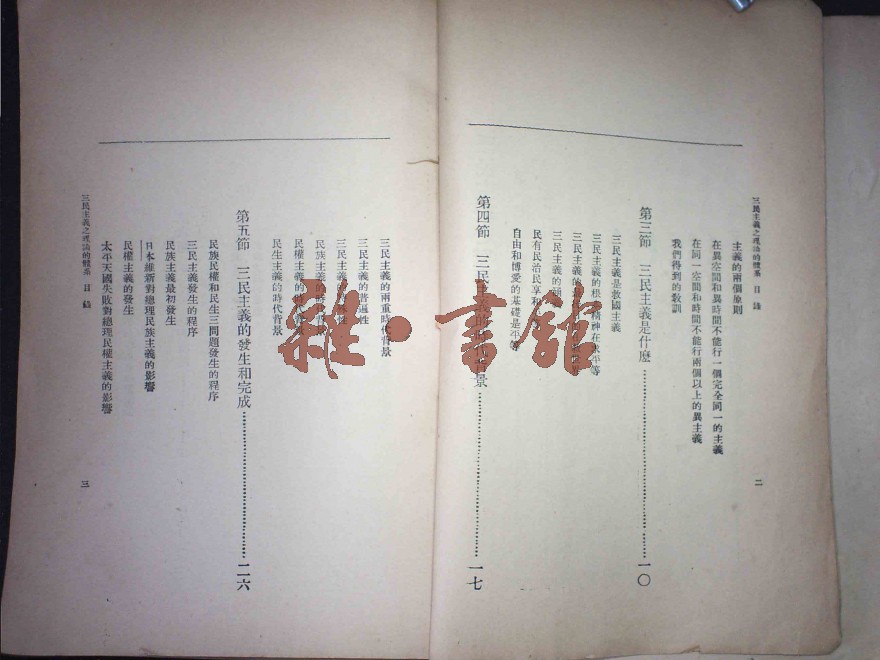 三民主義之理論的體系　目錄
主義的兩個原則
在異空間和異時間不能行一個完全同一的主義
在同一空間和時間不能行兩個以上的異主義
我們得到的教訓
第三節　三民主義是什麽……一〇
三民主義是救國主義
三民主義的根本精神在求平等
三民主義的
三民主義的
民有民治民享和
自由和博愛的基礎是平等
第四節　三民主義的時代背景……一七
二
三民主義的兩重時代背景
三民主義的普遍性
三民主義的
民族主義的時代背景
民權主義的時代背景
民生主義的時代背景
第五節　三民主義的發生和完成……二六
民族民權和民生三問題發生的程序
三民主義發生的程序
民族主義最初發生
日本維新對總理民族主義的影響
民權主義的發生
太平天國失敗對總理民權主義的影響
三民主義之理論的體系　目錄
三
雜·書館